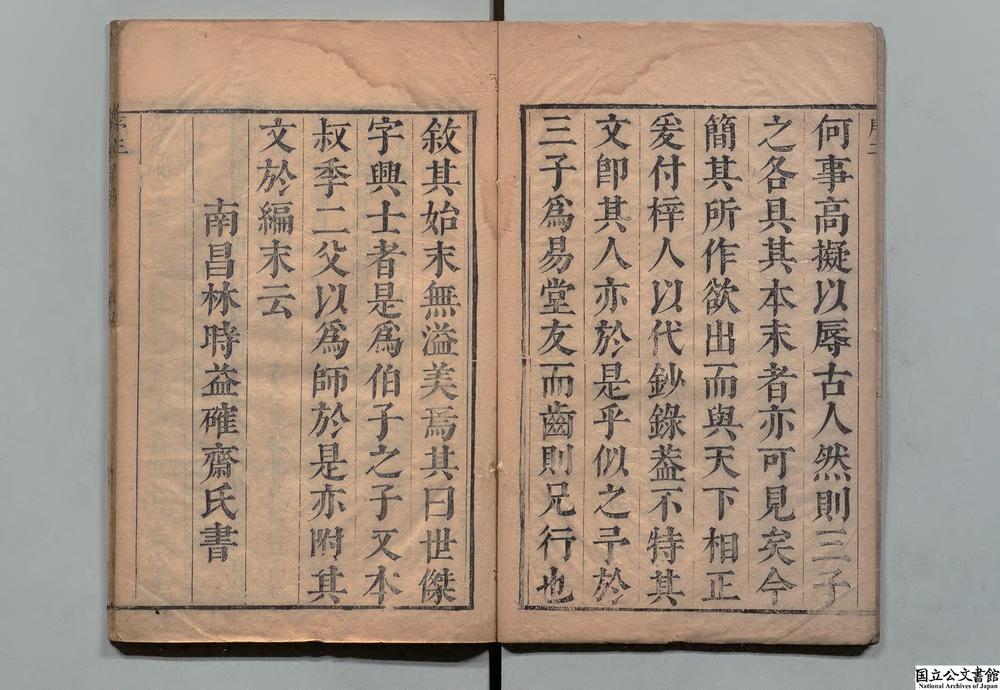 何事高擬以辱古人然則三子
之各具其本末者亦可見矣今
簡其所作欲出而與天下相正
爰付梓人以代鈔錄葢不特其
文卽其人亦於是乎似之予於
三子爲易堂友而齒則兄行也
敘其始末無溢美焉其曰世傑
字興士者是爲伯子之子又本
叔季二父以爲師於是亦附其
文於編末云
南昌林時益確齋氏書
国立公文書館
National Archives of Japan